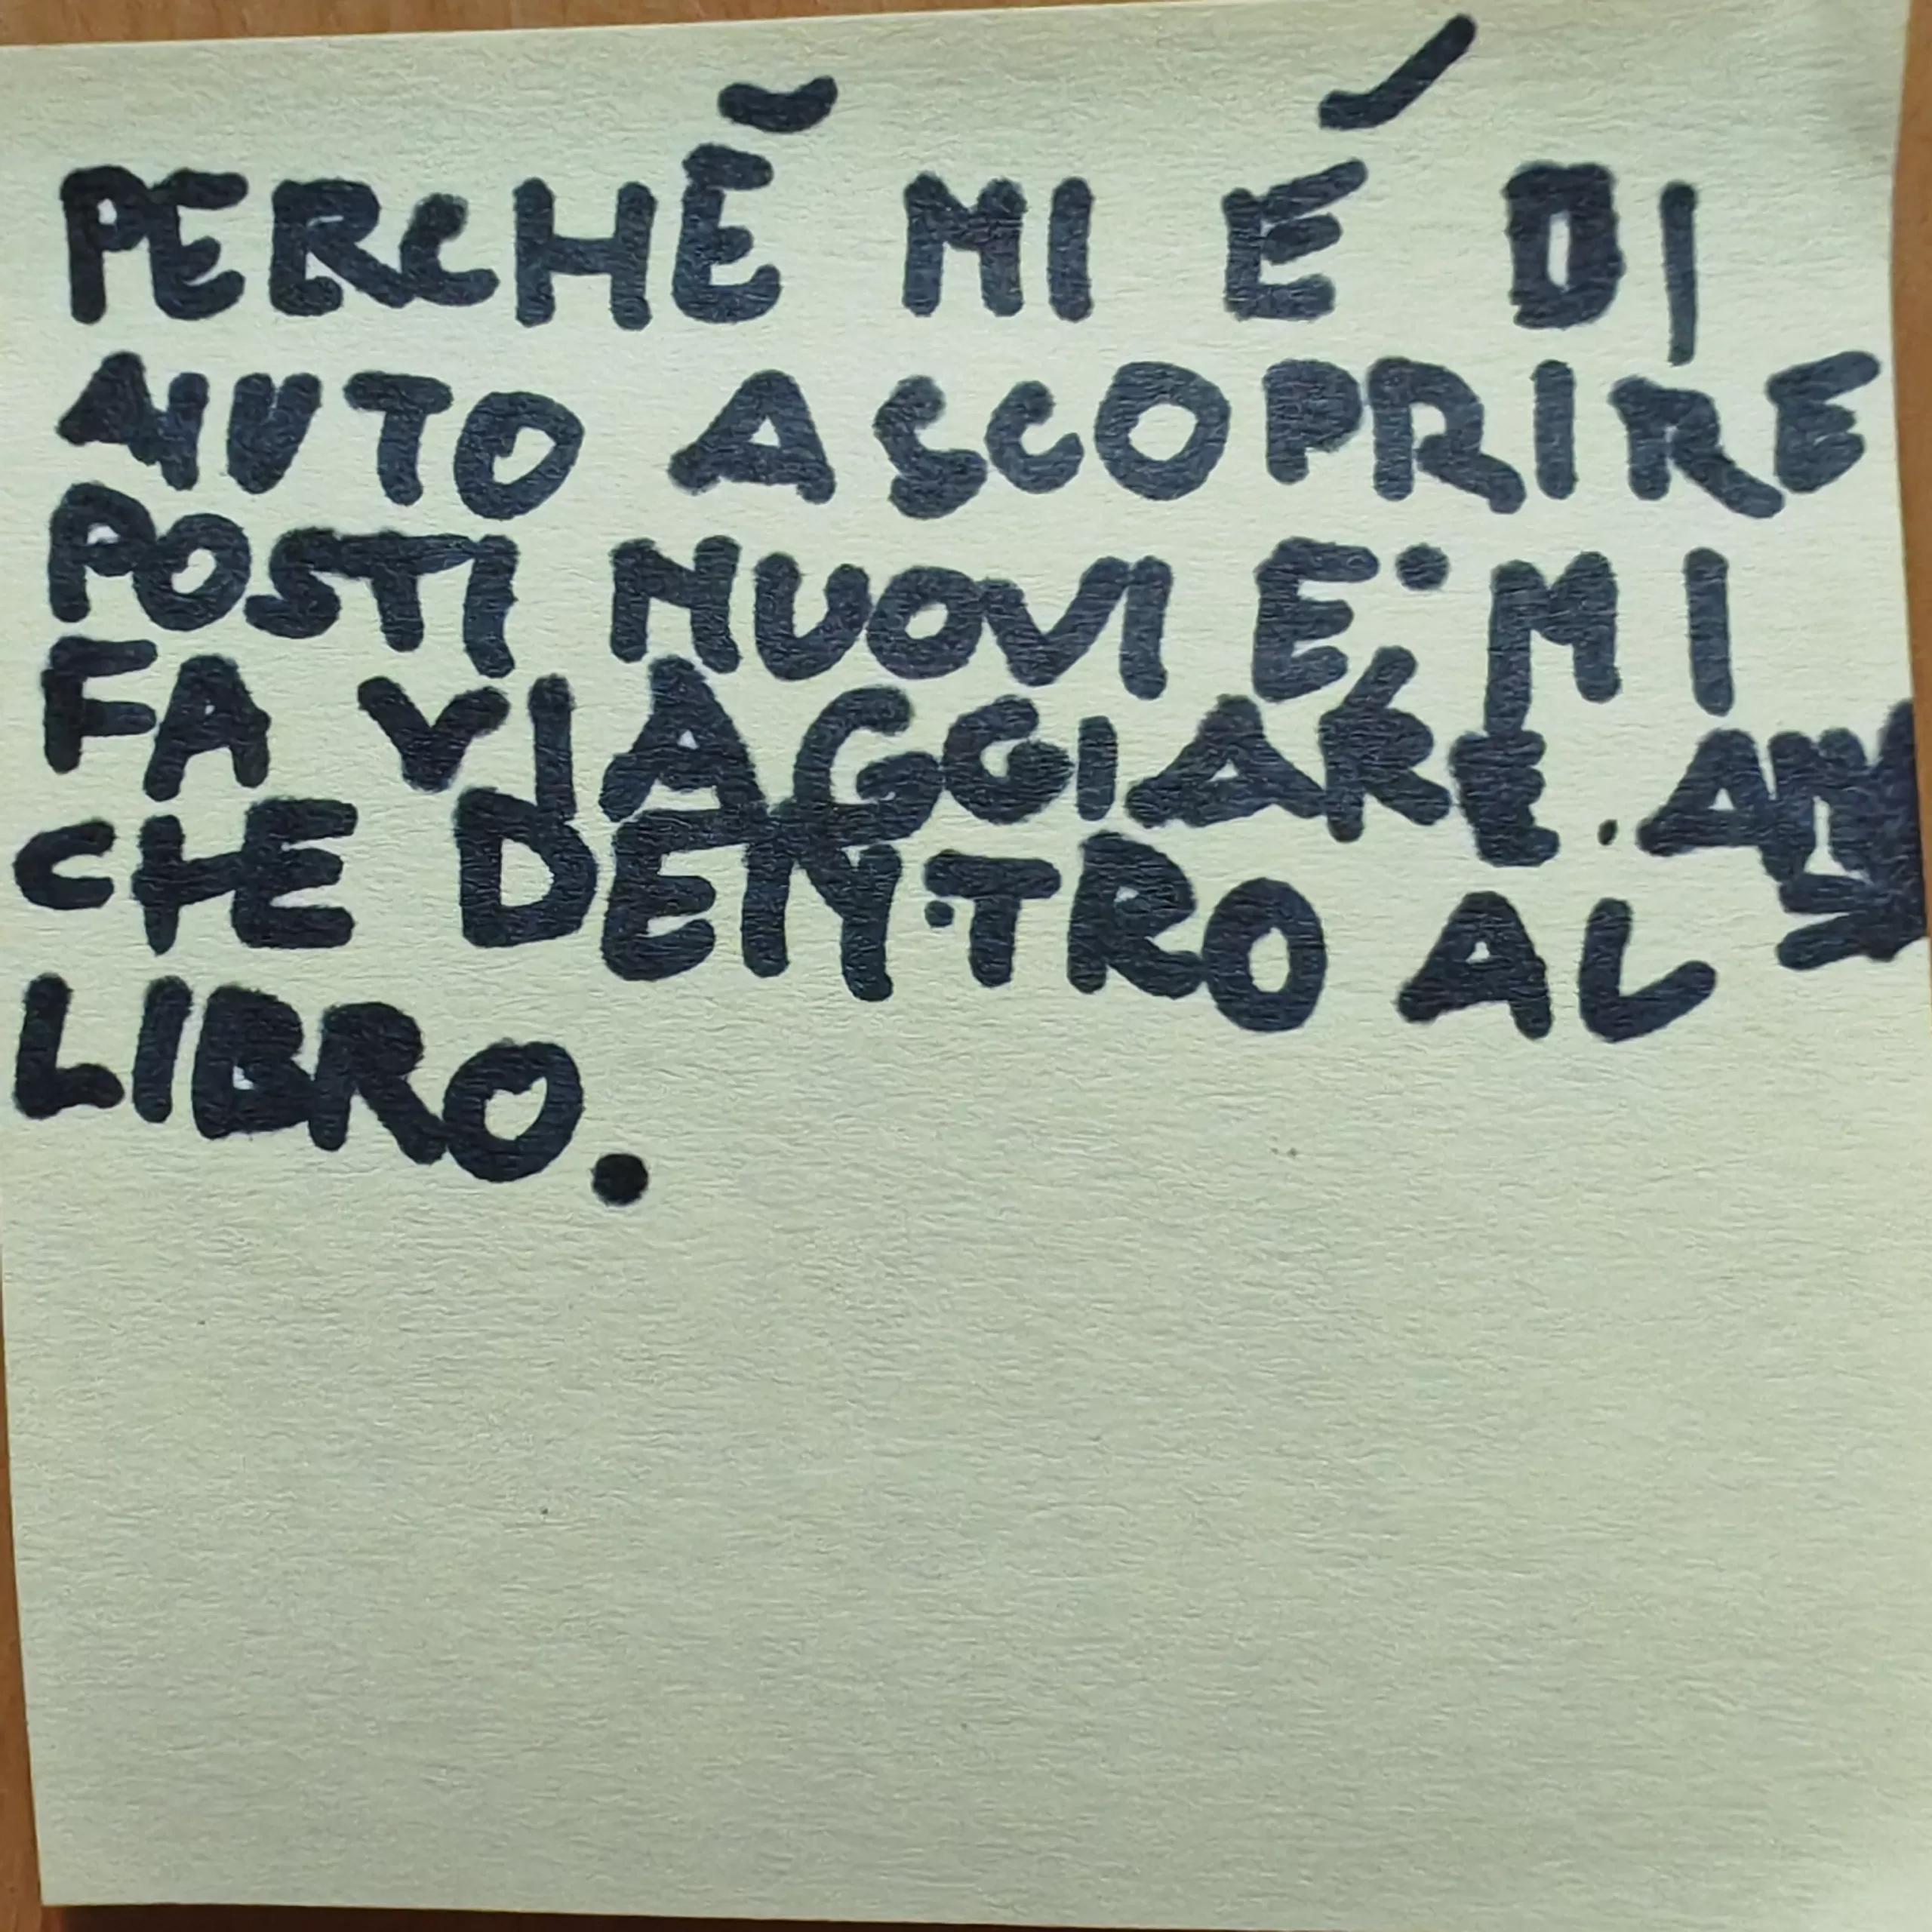 PERCHĔ MI É DI
AIUTO A SCOPRIRE
POSTI NUOVI E MI
FA VIAGGIARE. AN
CHE DENTRO AL
LIBRO.